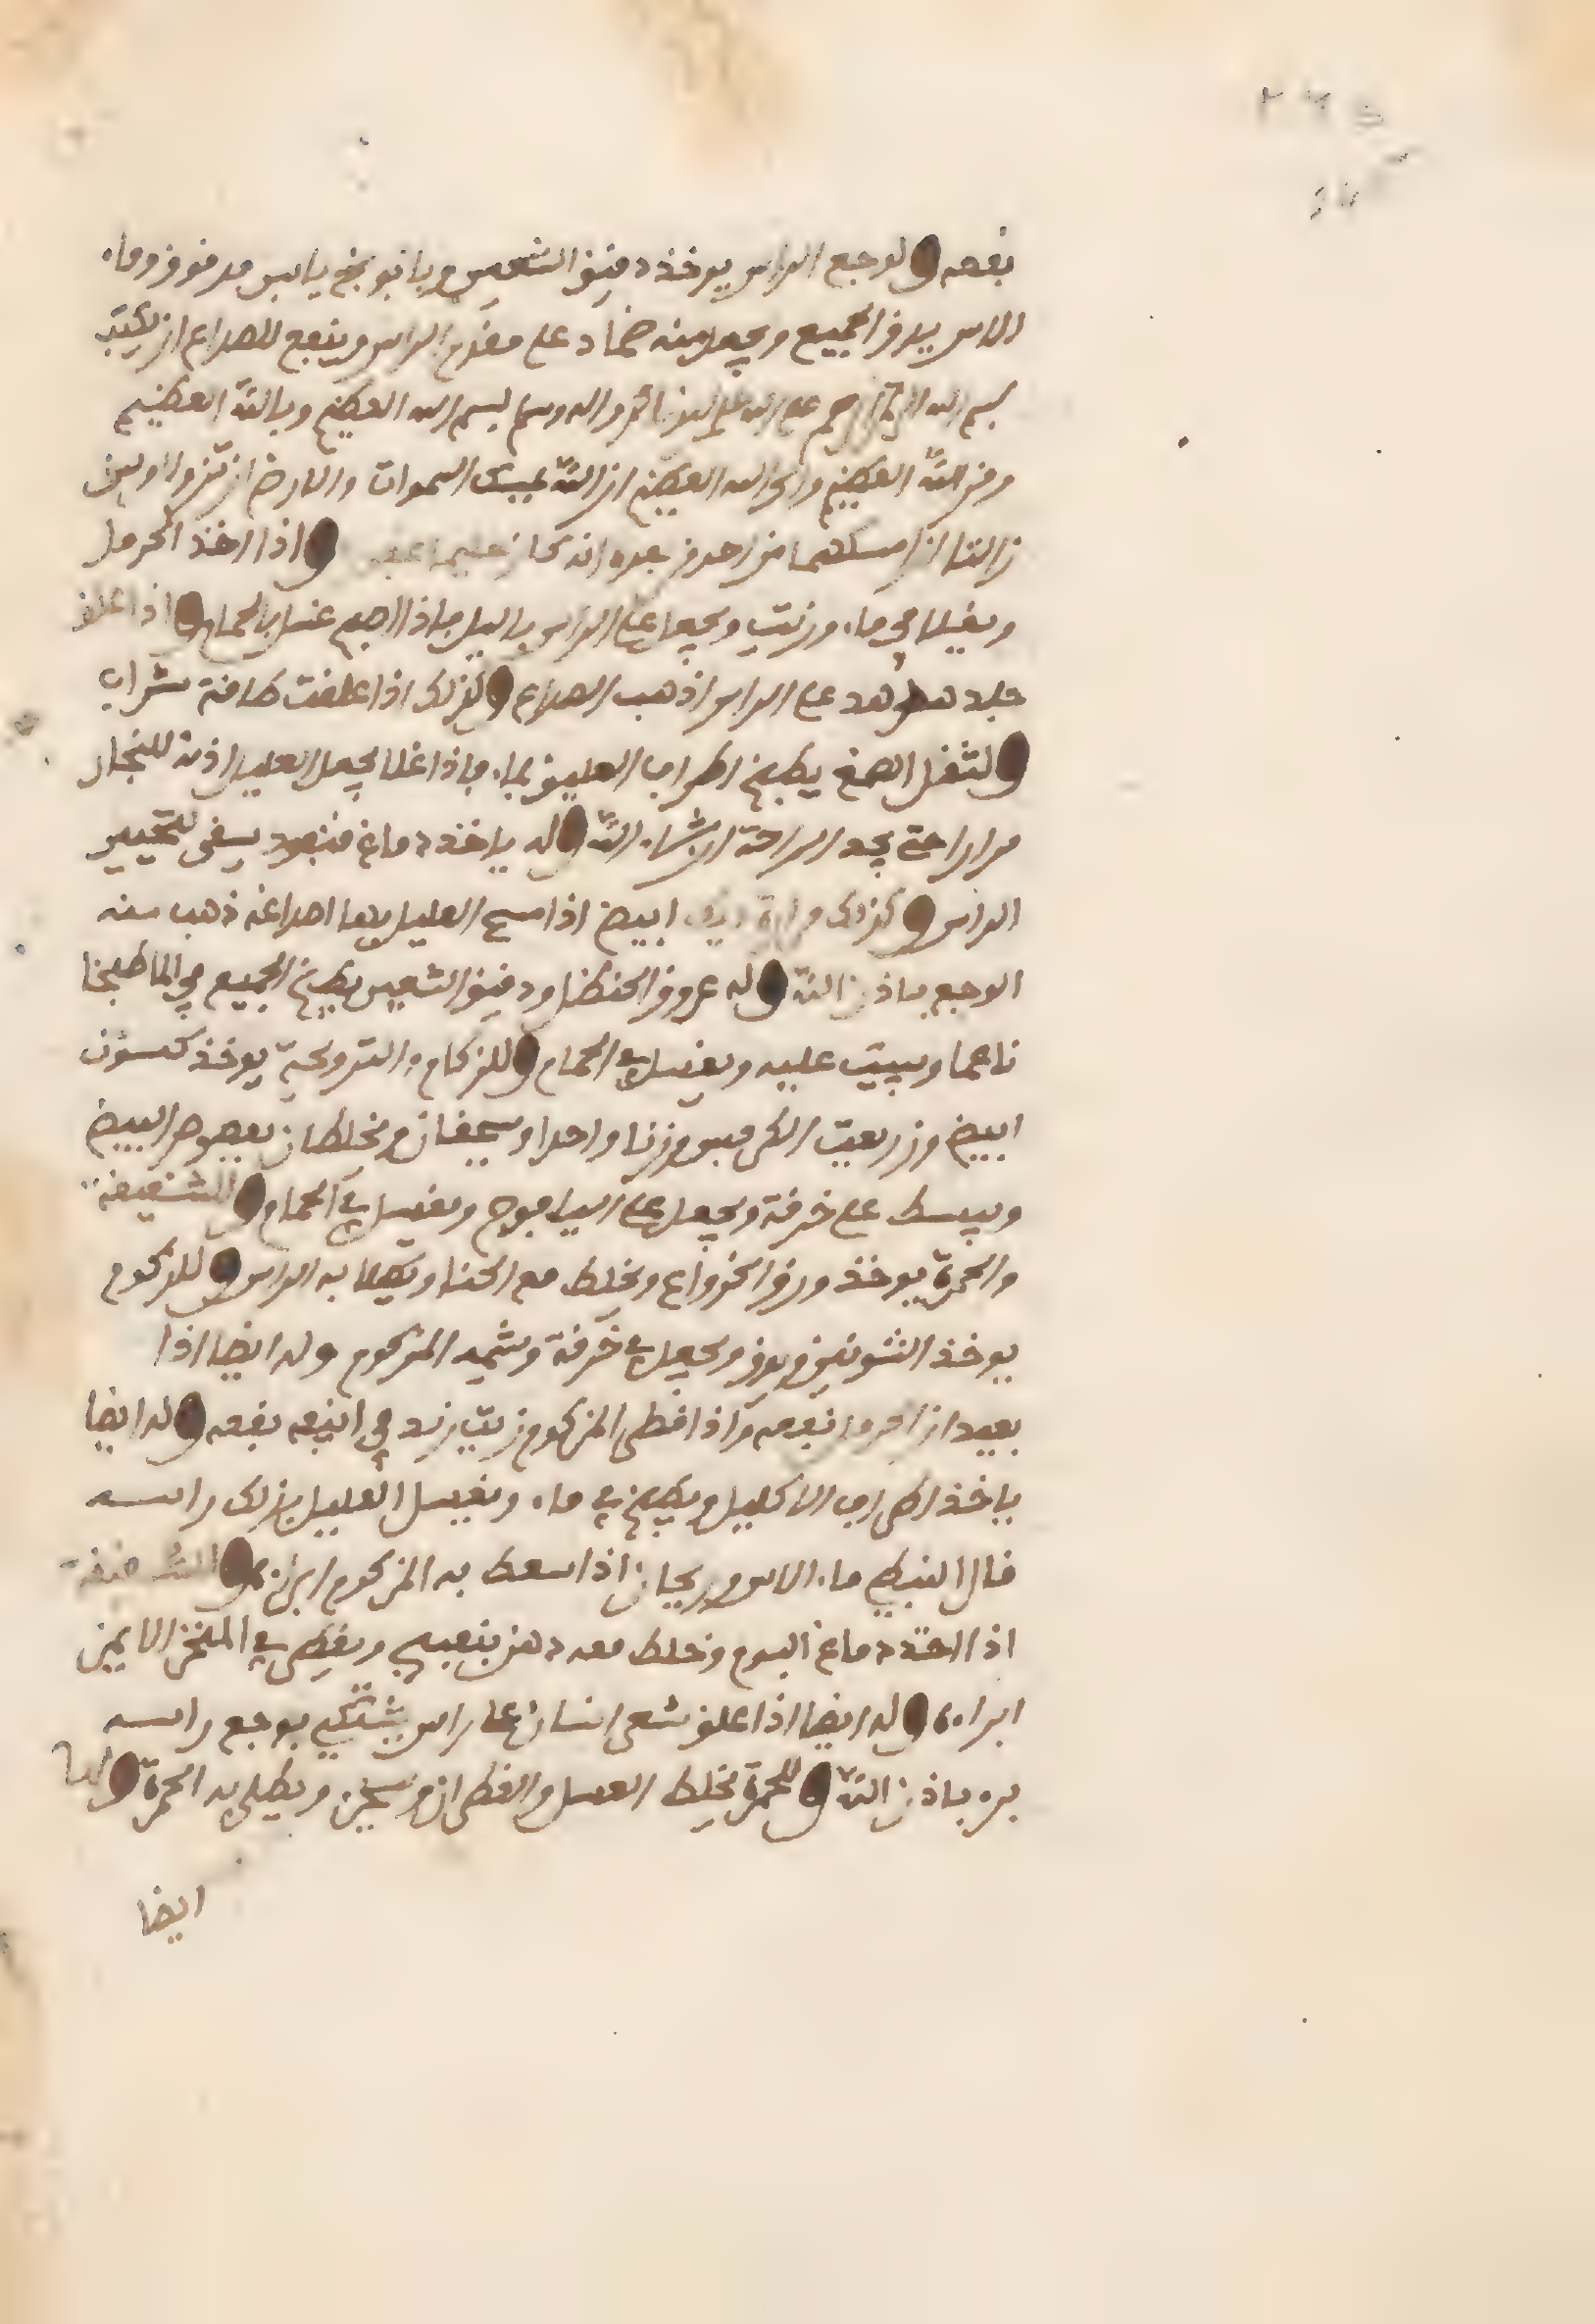 نفعه ولوجع الراس يوخذ دقيق الشعير وبابونج يابس مدقوق وماء
الاس يدق الجميع ويجعل منه ضماد على مقدم الراس وينفع للصداع ان يكتب
بسم الله الرحمن الرحيم صلى الله على سيدنا محمد واله وسلم بسم الله العظيم وبالله العظيم
ومن الله العظيم والى الله العظيم ان الله يمسك السموات والارض ان تزولا ولين
زالتا ان امسكهما من احد من بعده انه كان حليما غفورا واذا اخذ الحرمل
ويغلى في ماء وزيت ويجعل على الراس بالليل فاذا اصبح غسل بالحمام واذا علق
جلد هدهد على الراس اذهب الصداع وكذلك اذا علقت طاقة شراب
ولثقل الصمغ يطبخ اطراف العليق بماء فاذا غلا يجعل العليل اذنه للبخار
مرارا حتى يجد الراحة ان شاء الله وله ياخذ دماغ قنفود يسقى لتحيير
الراس وكذلك مرارة ديك ابيض اذا مسح العليل بها اصداغه ذهب منه
الوجع باذن الله وله عروق الحنظل ودقيق الشعير يطبخ الجميع في الما طبخا
ناعما ويبيت عليه ويغسل في الحمام وللزكام والترويحة يوخذ كمون
ابيض وزريعت الكرفس وزنا واحدا ويسحقان ويخلطان بفصوص البيض
ويبسط على خرقة ويجعل على اليافوخ ويغسل في الحمام وللشقيقة
والحمرة يوخذ ورق الخرواع ويخلط مع الحنا ويطلا به الراس وللمزكوم
يوخذ الشونيز ويدق ويجعل في خرقة ويشمه المزكوم وله ايضا اذا
بعيد ان نفعه واذا قطر المزكوم زيت زبد في انفه نفعه وله ايضا
ياخذ اطراف الاكليل ويطبخ في ماء ويغسل العليل بذلك راسه
قال النبطي ماء الاس وريحان اذا سعط به المزكوم ابراه وللشقيقة
اذا اخذ دماغ البوم وخلط معه دهن بنفسج ويقطر في المنخر الايمن
ابراه وله ايضا اذا علق شعر انسان على راس يشتكي بوجع راسه
بره باذن الله وللحمرة يخلط العسل والقطران ويسخن ويطلى به الحمرة ولها
ايضا